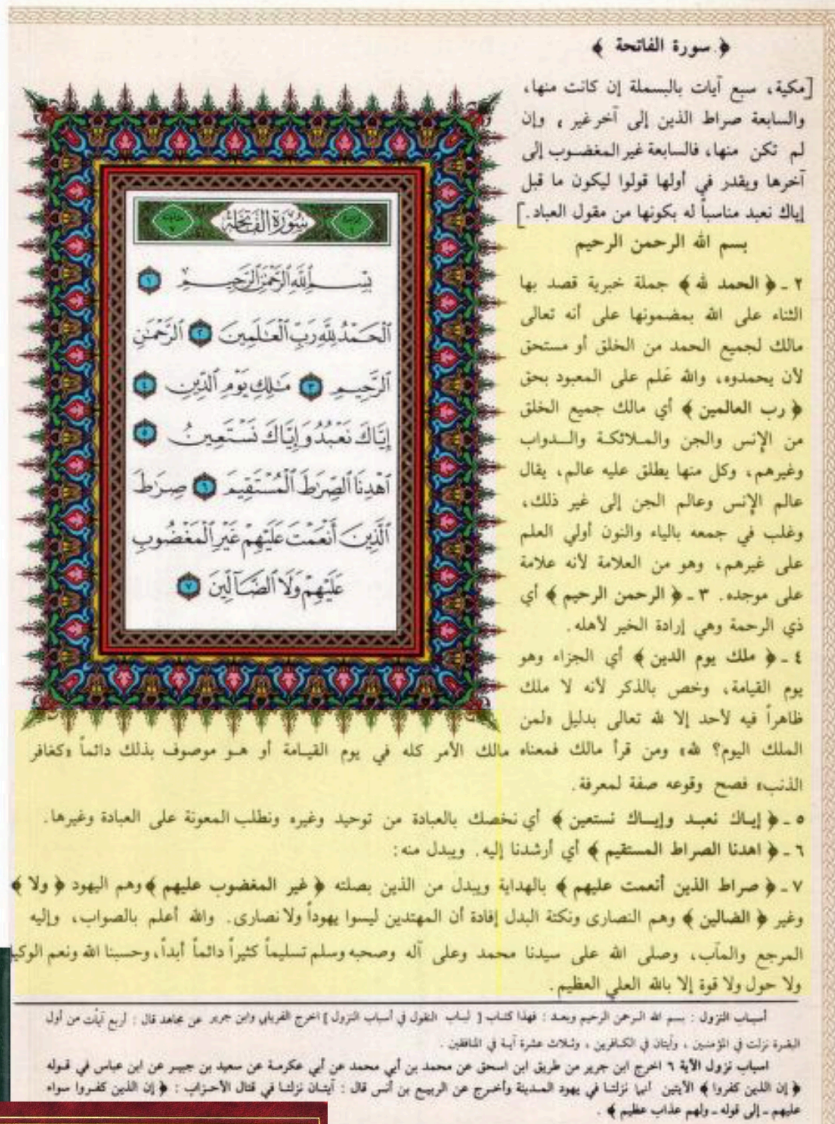 ﴿ سورة الفاتحة ﴾
[مكية، سبع آيات بالبسملة إن كانت منها،
والسابعة صراط الذين إلى آخر غير، وإن
لم تكن منها، فالسابعة غير المغضوب إلى
آخرها ويقدر في أولها قولوا ليكون ما قبل
إياك نعبد مناسباً له بكونها من مقول العباد.]
بسم الله الرحمن الرحيم
٢ - ﴿ الحمد لله ﴾ جملة خبرية قصد بها
الثناء على الله بمضمونها على أنه تعالى
مالك لجميع الحمد من الخلق أو مستحق
لأن يحمدوه، والله عَلم على المعبود بحق
﴿ رب العالمين ﴾ أي مالك جميع الخلق
من الإنس والجن والملائكة والدواب
وغيرهم، وكل منها يطلق عليه عالم، يقال
عالم الإنس وعالم الجن إلى غير ذلك،
وغلب في جمعه بالياء والنون أولي العلم
على غيرهم، وهو من العلامة لأنه علامة
على موجده. ٣ - ﴿ الرحمن الرحيم ﴾ أي
ذي الرحمة وهي إرادة الخير لأهله.
٤ - ﴿ ملك يوم الدين ﴾ أي الجزاء وهو
يوم القيامة، وخص بالذكر لأنه لا ملك
ظاهراً فيه لأحد إلا لله تعالى بدليل «لمن
الملك اليوم؟ لله» ومن قرأ مالك فمعناه مالك الأمر كله في يوم القيامة أو هو موصوف بذلك دائماً «كغافر
الذنب» فصح وقوعه صفة لمعرفة.
٥ - ﴿ إياك نعبد وإياك نستعين ﴾ أي نخصك بالعبادة من توحيد وغيره ونطلب المعونة على العبادة وغيرها.
٦ - ﴿ اهدنا الصراط المستقيم ﴾ أي أرشدنا إليه. ويبدل منه:
٧ - ﴿ صراط الذين أنعمت عليهم ﴾ بالهداية ويبدل من الذين بصلته ﴿ غير المغضوب عليهم ﴾ وهم اليهود ﴿ ولا ﴾
وغير ﴿ الضالين ﴾ وهم النصارى ونكتة البدل إفادة أن المهتدين ليسوا يهوداً ولا نصارى. والله أعلم بالصواب، وإليه
المرجع والمآب، وصلى الله على سيدنا محمد وعلى آله وصحبه وسلم تسليماً كثيراً دائماً أبداً، وحسبنا الله ونعم الوكيل
ولا حول ولا قوة إلا بالله العلي العظيم.
سُورَةُ الفَاتِحَةِ
بِسْمِ ٱللَّهِ ٱلرَّحْمَٰنِ ٱلرَّحِيمِ ١
ٱلْحَمْدُ لِلَّهِ رَبِّ ٱلْعَٰلَمِينَ ٢ ٱلرَّحْمَٰنِ
ٱلرَّحِيمِ ٣ مَٰلِكِ يَوْمِ ٱلدِّينِ ٤
إِيَّاكَ نَعْبُدُ وَإِيَّاكَ نَسْتَعِينُ ٥
ٱهْدِنَا ٱلصِّرَٰطَ ٱلْمُسْتَقِيمَ ٦ صِرَٰطَ
ٱلَّذِينَ أَنْعَمْتَ عَلَيْهِمْ غَيْرِ ٱلْمَغْضُوبِ
عَلَيْهِمْ وَلَا ٱلضَّآلِّينَ ٧
أسباب النزول : بسم الله الرحمن الرحيم وبعد : فهذا كتاب [ لباب النقول في أسباب النزول ] اخرج الفريابي وابن جرير عن مجاهد قال : أربع آيات من أول
البقرة نزلت في المؤمنين ، وآيتان في الكافرين ، وثلاث عشرة آية في المنافقين .
اسباب نزول الآية ٦ اخرج ابن جرير من طريق ابن اسحق عن محمد بن أبي محمد عن أبي عكرمة عن سعيد بن جبير عن ابن عباس في قوله
﴿ إن الذين كفروا ﴾ الآيتين أنها نزلتا في يهود المدينة وأخرج عن الربيع بن أنس قال : آيتان نزلتا في قتال الأحزاب : ﴿ إن الذين كفروا سواء
عليهم - إلى قوله - ولهم عذاب عظيم ﴾ .